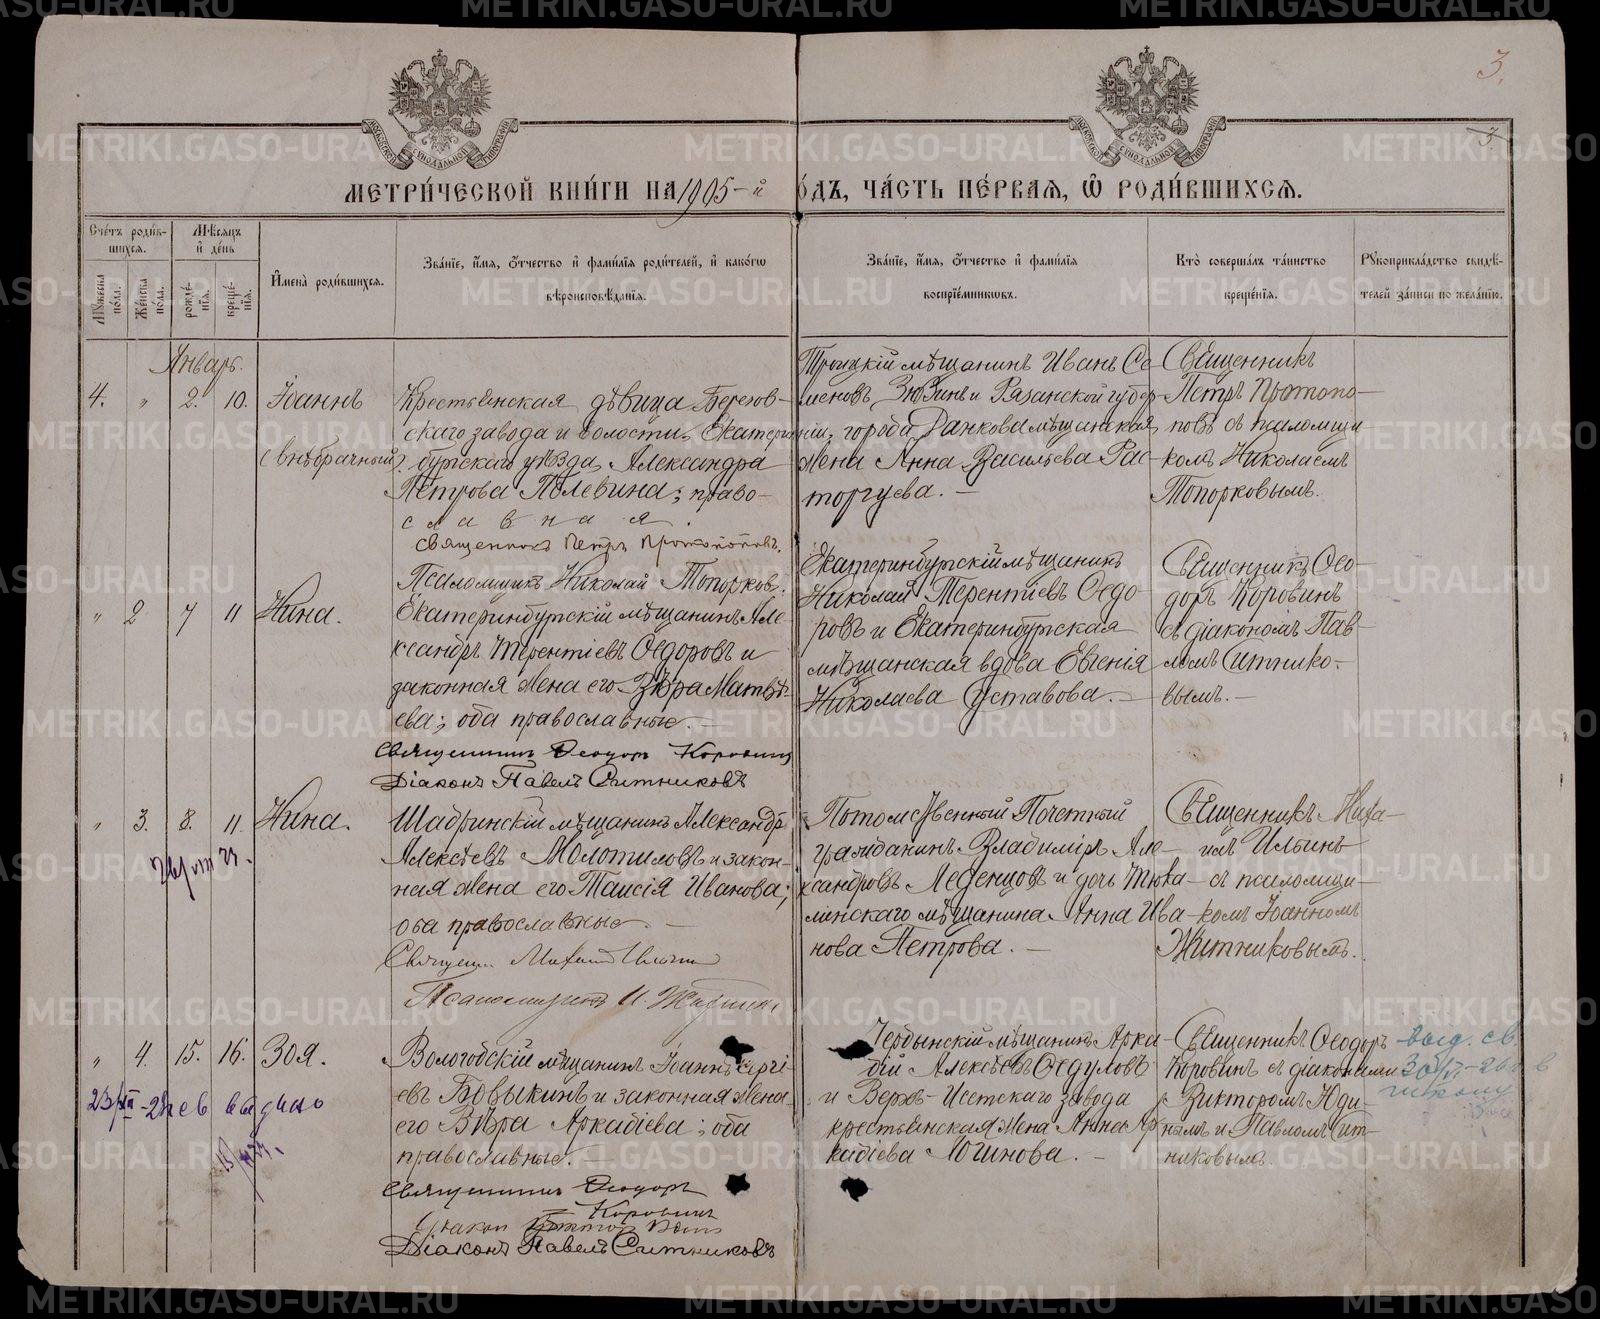 3.
МЕТРИ́ЧЕСКОЙ КНИ́ГИ НА 1905-й ГО́ДЪ, ЧА́СТЬ ПЕ́РВАЯ, Ѽ РОДИ́ВШИХСЯ.
Сче́тъ роди́вшихся.
Му́жеска по́ла.
Же́нска по́ла.
Мѣ́сяцъ и҆ де́нь
рожде́нїя.
креще́нїя.
И҆мена̀ роди́вшихся.
Зва́нїе, и҆́мя, ѻ҆́тчество и҆ фами́лїя роди́телей, и҆ како́гѡ вѣроисповѣ́данїя.
Зва́нїе, и҆́мя, ѻ҆́тчество и҆ фами́лїя воспрїе́мникѡвъ.
Кто̀ соверша́лъ та́инство креще́нїя.
Рꙋкоприкла́дство свидѣ́телей за́писи по жела́нїю.
Январь.
4. " 2. 10. Іоаннъ
(внѣбрачный)
Крестьянская дѣвица Березов-
скаго завода и волости, Екатерин-
бургскаго уѣзда, Александра
Петрова Полевина; право-
славная.
Священникъ Петръ Протопоповъ.
Псаломщикъ Николай Топорков.
Троицкій мѣщанинъ Иванъ Се-
меновъ Зювинъ и Рязанской губер-
ніи, города Данкова мѣщанская
жена Анна Васильева Рас-
торгуева. –
Священникъ
Петръ Протопо-
повъ съ псаломщи-
комъ Николаемъ
Топорковымъ.
" 2 7 11 Нина.
Екатеринбургскій мѣщанинъ Але-
ксандръ Терентіевъ Ѳедоровъ и
законная жена его Вѣра Матвѣ-
ева; оба православные. –
Священникъ Ѳеодоръ Коровинъ
Діаконъ Павелъ Ситниковъ
Екатеринбургскій мѣщанинъ
Николай Терентіевъ Ѳедо-
ровъ и Екатеринбургская
мѣщанская вдова Евгенія
Николаева Суставова. –
Священникъ Ѳео-
доръ Коровинъ
съ діакономъ Пав-
ломъ Ситнико-
вымъ. –
" 3. 8. 11. Нина.
Шадринскій мѣщанинъ Александръ
Алексѣевъ Молотиловъ и закон-
ная жена его Таисія Иванова;
оба православные. –
Священ. Михаилъ Ильинъ
Псаломщикъ И. Житник.
Потомственный Почетный
гражданинъ Владиміръ Але-
ксандровъ Леденцовъ и дочь Тюка-
линскаго мѣщанина Анна Ива-
нова Петрова. –
Священникъ Миха-
илъ Ильинъ
съ псаломщи-
комъ Іоанномъ
Житниковымъ.
" 4. 15. 16. Зоя.
Вологодскій мѣщанинъ Іоаннъ Сергі-
евъ Бовыкинъ и законная жена
его Вѣра Аркадіева; оба
православные. –
Священникъ Ѳеодоръ
Коровинъ
Діаконъ Павелъ Ситниковъ
Чердынскій мѣщанинъ Арка-
дій Алексѣевъ Ѳедуловъ
и Верхъ-Исетскаго завода
крестьянская жена Анна Ар-
кадіева Логинова. –
Священникъ Ѳеодоръ
Коровинъ съ діаконами
Викторомъ Юди-
нымъ и Павломъ Сит-
никовымъ.
выд. св.
METRIKI.GASO-URAL.RU